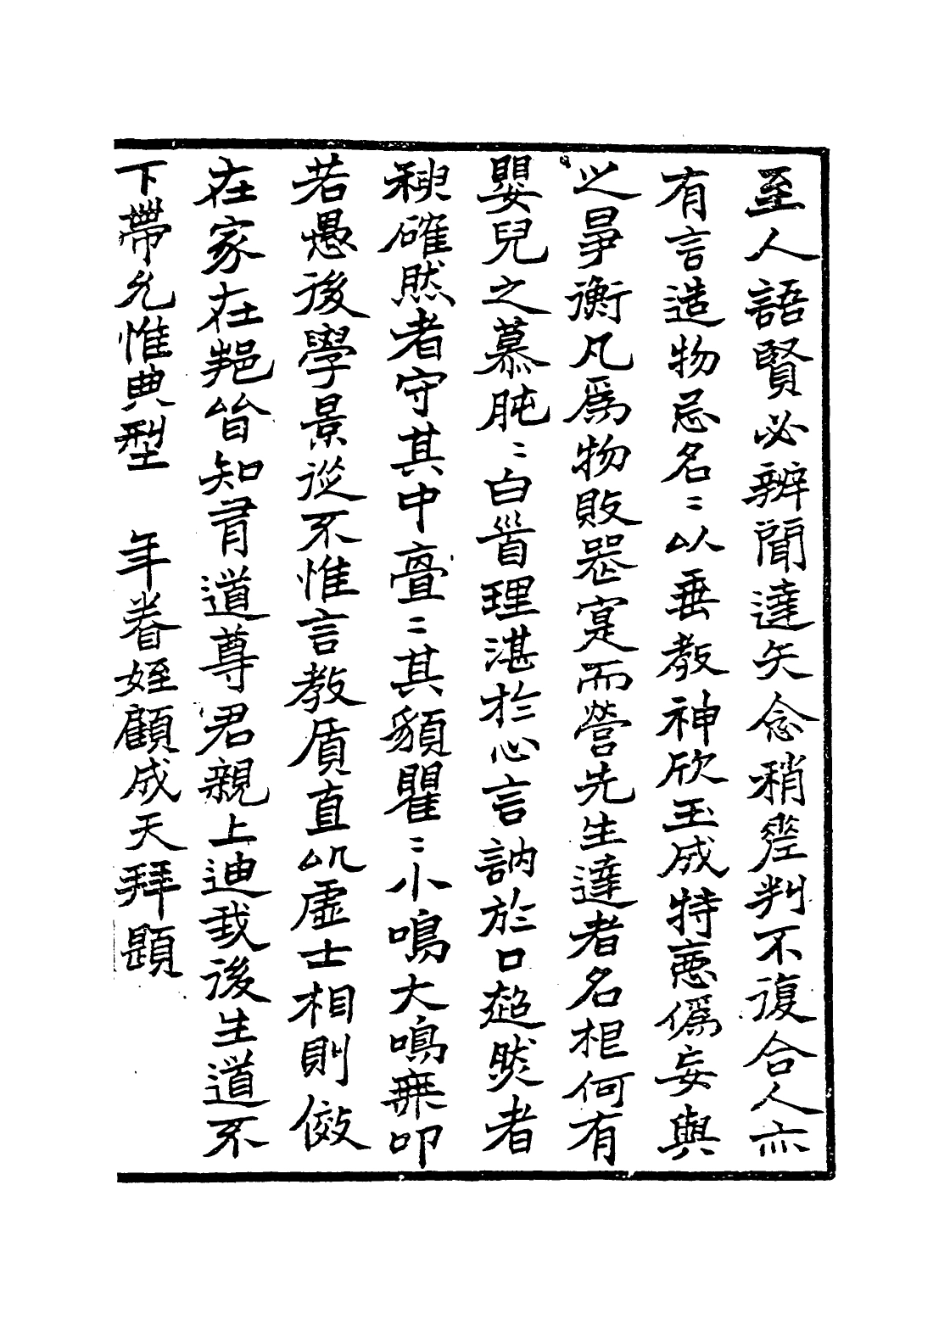 至人語賢必辨聞達矢念稍差判不復合人亦
有言造物忌名〻以垂教神欣玉成特惡僞妄與
之爭衡凡爲物敗器寔而營先生達者名根何有
嬰兒之慕肫〻白首理湛於心言訥於口超然者
穆確然者守其中亹〻其貌瞿〻小鳴大鳴無叩
若愚後學景從不惟言教質直帆虛士相則傚
在家在邦皆知有道尊君親上迪我後生道不
下帶允惟典型　年眷姪顧成天拜題